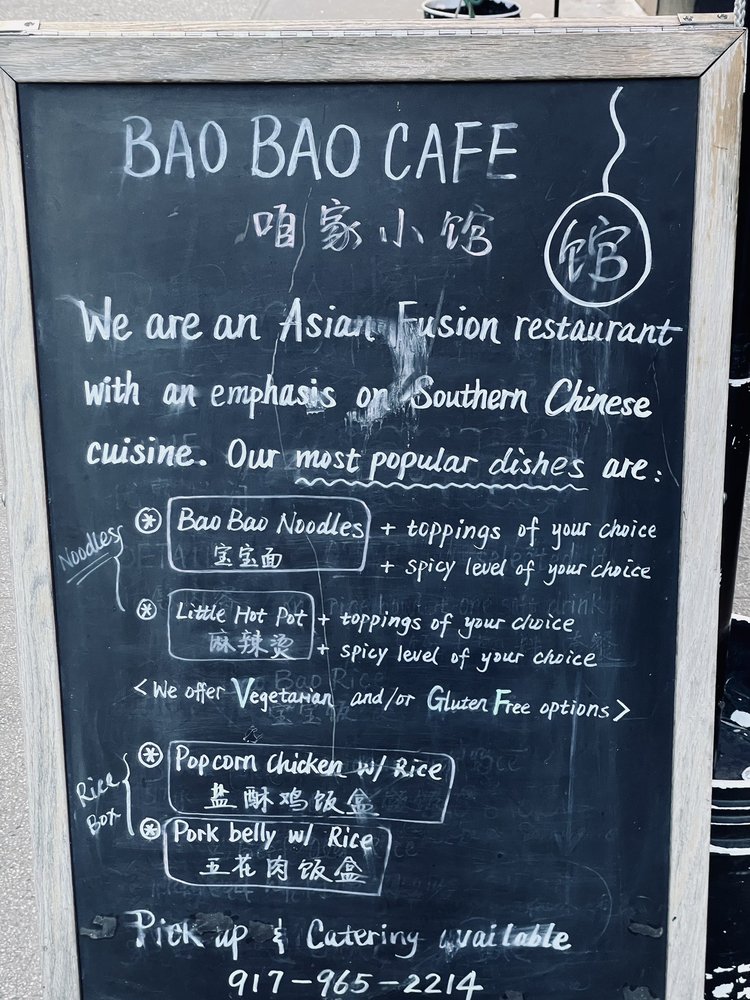 BAO BAO CAFE
咱家小馆
馆
We are an Asian Fusion restaurant
with an emphasis on Southern Chinese
cuisine. Our most popular dishes are:
Noodles
Bao Bao Noodles + toppings of your choice
宝宝面 + spicy level of your choice
Little Hot Pot + toppings of your choice
麻辣烫 + spicy level of your choice
<We offer Vegetarian and/or Gluten Free options>
Rice
Box
Popcorn chicken w/ Rice
盐酥鸡饭盒
Pork belly w/ Rice
五花肉饭盒
Pick up & Catering available
917-965-2214